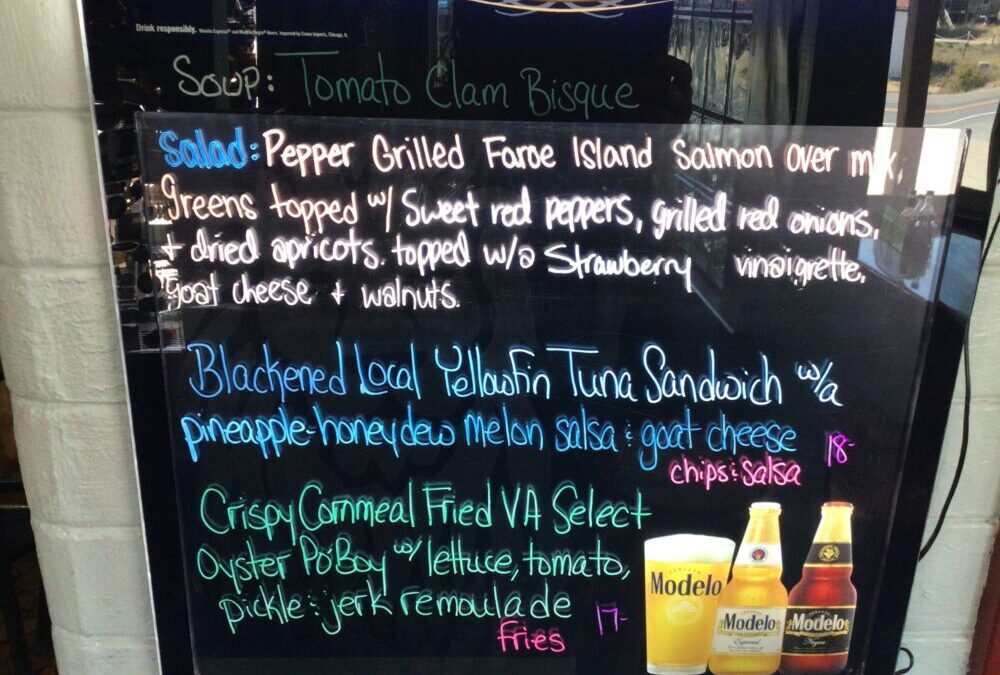 Drink responsibly.
Soup: Tomato Clam Bisque
Salad: Pepper Grilled Faroe Island Salmon over mix
greens topped w/ Sweet red peppers, grilled red onions,
+ dried apricots. topped w/a Strawberry vinaigrette,
goat cheese + walnuts.
Blackened Local Yellowfin Tuna Sandwich w/a
pineapple-honeydew melon salsa & goat cheese 18-
chips & salsa
Crispy Cornmeal Fried VA Select
Oyster Po'Boy w/ lettuce, tomato,
pickle & jerk remoulade 17-
fries
Modelo
Modelo
Especial
Modelo
Negra